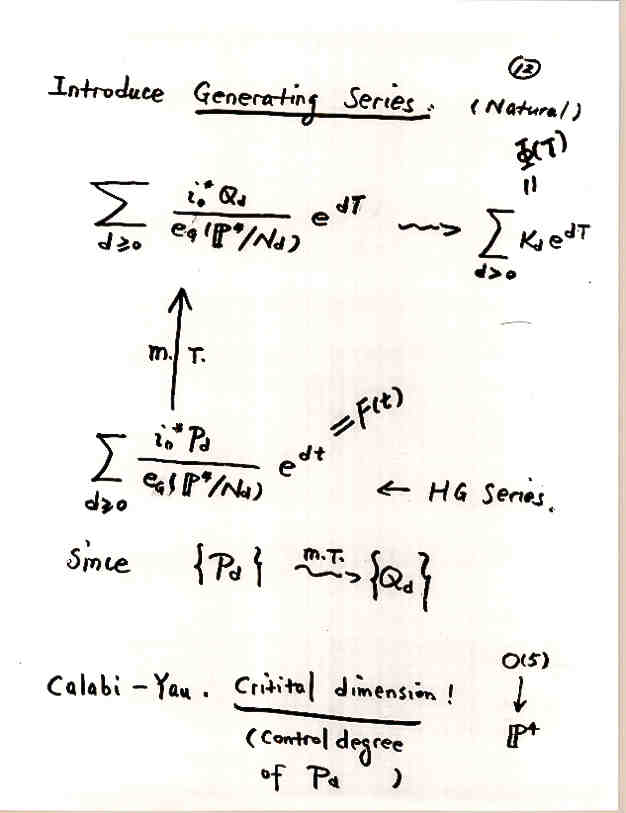 ⑫
Introduce Generating Series. (Natural)
Φ(T)
=
∑_{d≥0} i₀^* Q_d / e_G(ℙ⁴/N_d) e^{dT} ⇝ ∑_{d>0} K_d e^{dT}
m. T.
∑_{d≥0} i₀^* P_d / e_G(ℙ⁴/N_d) e^{dt} = F(t)
← HG Series.
Since {P_d} m.T. ⇝ {Q_d}
O(5)
Calabi-Yau. Critital dimension! ↓
(Control degree ℙ⁴
of P_d )